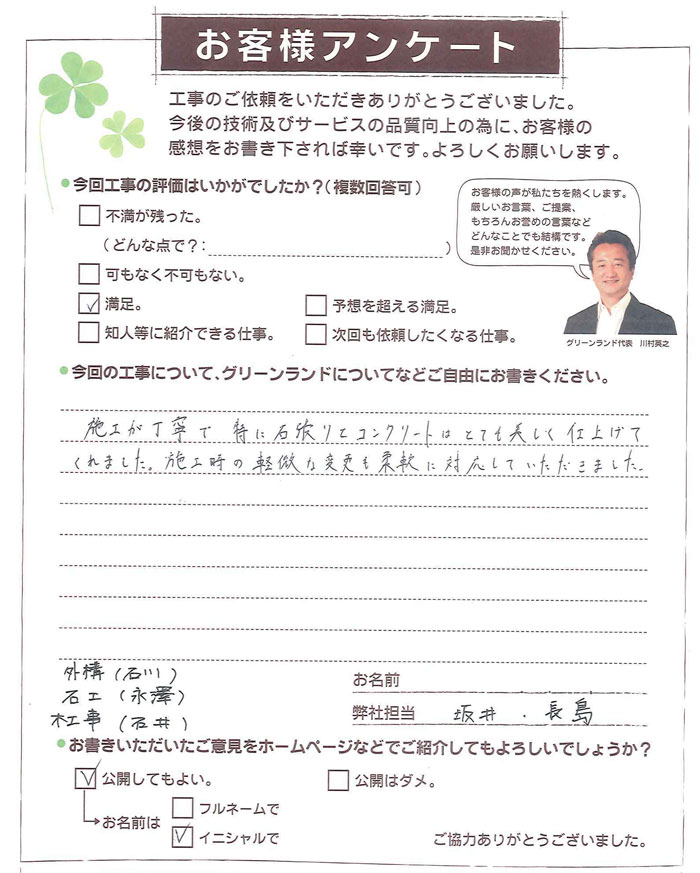 お客様アンケート
工事のご依頼をいただきありがとうございました。
今後の技術及びサービスの品質向上の為に、お客様の
感想をお書き下されば幸いです。よろしくお願いします。
今回工事の評価はいかがでしたか？（複数回答可）
不満が残った。
（どんな点で？：　）
可もなく不可もない。
満足。
予想を超える満足。
知人等に紹介できる仕事。
次回も依頼したくなる仕事。
お客様の声が私たちを熱くします。
厳しいお言葉、ご提案、
もちろんお誉めの言葉など
どんなことでも結構です。
是非お聞かせください。
グリーンランド代表　川村英之
今回の工事について、グリーンランドについてなどご自由にお書きください。
施工が丁寧で 特に石張りとコンクリートはとても美しく仕上げて
くれました。施工時の軽微な変更も柔軟に対応していただきました。
外構（石川）
石工（永澤）
木工事（石井）
お名前
弊社担当　坂井 . 長島
お書きいただいたご意見をホームページなどでご紹介してもよろしいでしょうか？
公開してもよい。
公開はダメ。
お名前は
フルネームで
イニシャルで
ご協力ありがとうございました。